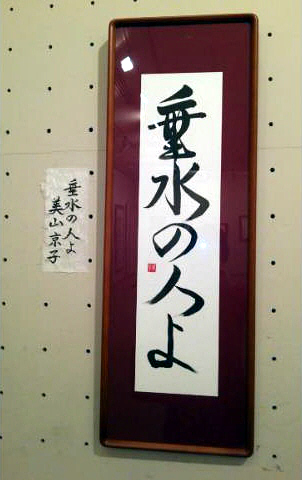 垂水の人よ
垂水の人よ
美山京子